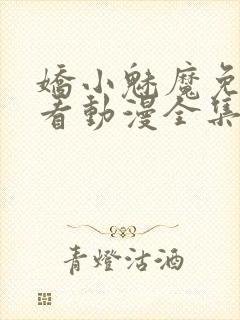 嬌小魅魔免
看動漫全集
青燈沽酒